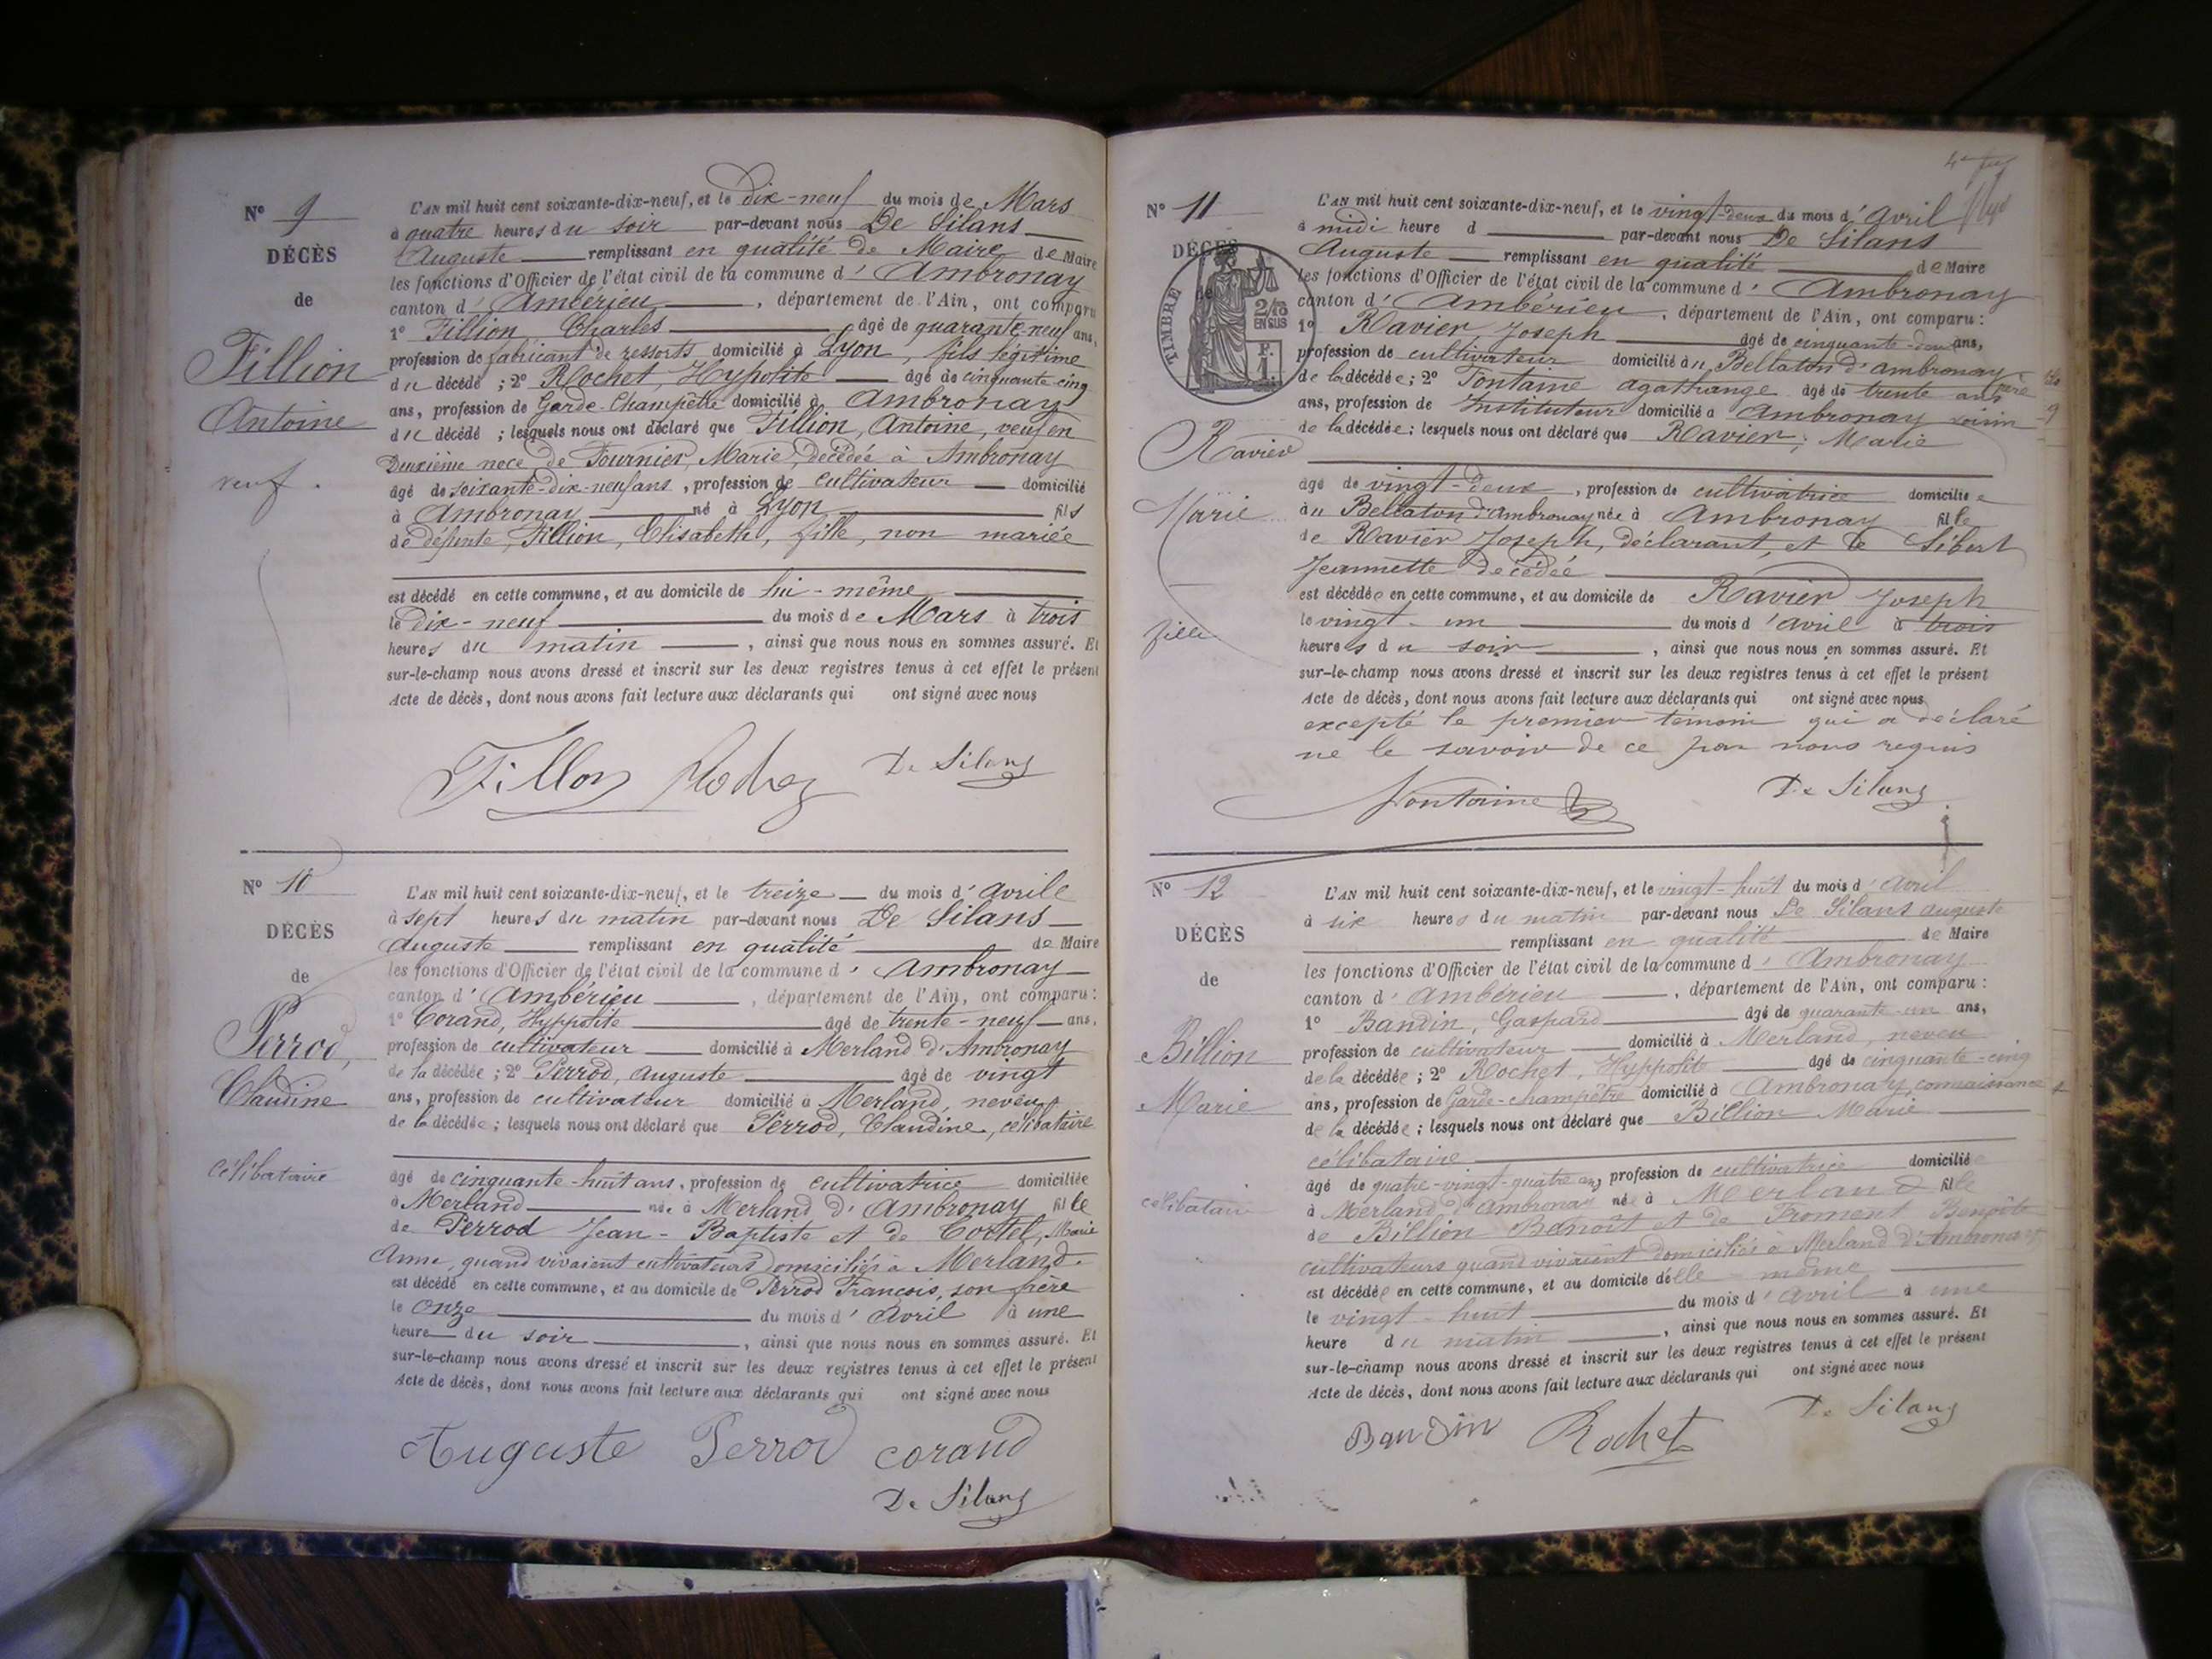 N° 9
DÉCÈS
de
Fillion
Antoine
veuf.
L'AN mil huit cent soixante-dix-neuf, et le dix-neuf du mois de Mars
à quatre heures du soir par-devant nous De Silans
Auguste remplissant en qualité de Maire de Maire
les fonctions d'Officier de l'état civil de la commune d' Ambronay
canton d' Ambérieu, département de l'Ain, ont comparu
1° Fillion, Charles âgé de quarante-neuf ans,
profession de fabricant de ressorts domicilié à Lyon, fils légitime
du décédé ; 2° Rochet, Hypolite âgé de cinquante cinq
ans, profession de Garde-Champêtre domicilié à Ambronay
du décédé ; lesquels nous ont déclaré que Fillion, Antoine, veuf en
Deuxième noce de Fournier, Marie, décédée à Ambronay
âgé de soixante-dix-neuf ans, profession de cultivateur domicilié
à Ambronay né à Lyon fils
de défunte, Fillion, Elisabeth, fille, non mariée
est décédé en cette commune, et au domicile de lui-même
le dix-neuf du mois de Mars à trois
heures du matin, ainsi que nous nous en sommes assuré. Et
sur-le-champ nous avons dressé et inscrit sur les deux registres tenus à cet effet le présent
Acte de décès, dont nous avons fait lecture aux déclarants qui ont signé avec nous
Fillon Rochet De Silans
N° 10
DÉCÈS
de
Perrod,
Claudine
célibataire
L'AN mil huit cent soixante-dix-neuf, et le treize du mois d' avrile
à sept heures du matin par-devant nous De Silans
Auguste remplissant en qualité de Maire
les fonctions d'Officier de l'état civil de la commune d' Ambronay
canton d' Ambérieu, département de l'Ain, ont comparu :
1° Corand, Hyppolite âgé de trente-neuf ans,
profession de cultivateur domicilié à Merland d'Ambronay
de la décédée ; 2° Perrod, Auguste âgé de vingt
ans, profession de cultivateur domicilié à Merland, neveux
de la décédée ; lesquels nous ont déclaré que Perrod, Claudine, célibataire
âgé de cinquante-huit ans, profession de cultivatrice domiciliée
à Merland née à Merland d'Ambronay fille
de Perrod Jean-Baptiste et de Cottel, Marie
Anne, quand vivaient cultivateurs domiciliés à Merland.
est décédé en cette commune, et au domicile de Perrod François, son frère
le onze du mois d' Avril à une
heure du soir, ainsi que nous nous en sommes assuré. Et
sur-le-champ nous avons dressé et inscrit sur les deux registres tenus à cet effet le présent
Acte de décès, dont nous avons fait lecture aux déclarants qui ont signé avec nous
Auguste Perrod corand
De Silans
N° 11
DÉCÈS
TIMBRE
2/10
EN SUS
F.
1.
Ravier
Marie
fille
L'AN mil huit cent soixante-dix-neuf, et le vingt-deux du mois d' avril
à midi heure d par-devant nous De Silans
Auguste remplissant en qualité de Maire
les fonctions d'Officier de l'état civil de la commune d' Ambronay
canton d' Ambérieu, département de l'Ain, ont comparu :
1° Ravier Joseph âgé de cinquante-deux ans,
profession de cultivateur domicilié au Bellaton d'ambronay père
de la décédée ; 2° Fontaine agathange âgé de trente ans
ans, profession de Instituteur domicilié à Ambronay voisin
de la décédée ; lesquels nous ont déclaré que Ravier, Marie
âgé de vingt-deux, profession de cultivatrice domiciliée
au Bellaton d'Ambronay née à Ambronay fille
de Ravier Joseph, déclarant, et de Sibert
Jeannette décédée
est décédée en cette commune, et au domicile de Ravier Joseph
le vingt-un du mois d' avril à trois
heures du soir, ainsi que nous nous en sommes assuré. Et
sur-le-champ nous avons dressé et inscrit sur les deux registres tenus à cet effet le présent
Acte de décès, dont nous avons fait lecture aux déclarants qui ont signé avec nous
excepté le premier témoin qui a déclaré
ne le savoir de ce par nous requis
Fontaine De Silans
N° 12
DÉCÈS
de
Billion
Marie
célibataire
L'AN mil huit cent soixante-dix-neuf, et le vingt-huit du mois d' avril
à six heures du matin par-devant nous De Silans auguste
remplissant en qualité de Maire
les fonctions d'Officier de l'état civil de la commune d' Ambronay
canton d' Ambérieu, département de l'Ain, ont comparu :
1° Bandin, Gaspard âgé de quarante-un ans,
profession de cultivateur domicilié à Merland, neveu
de la décédée ; 2° Rochet, Hyppolite âgé de cinquante-cinq
ans, profession de Garde-champêtre domicilié à Ambronay, connaissance
de la décédée ; lesquels nous ont déclaré que Billion Marie
célibataire
âgé de quatre-vingt-quatre ans, profession de cultivatrice domicilié
à Merland, d'Ambronay née à Merland fille
de Billion Benoît et de Froment Benoîte
cultivateurs quand vivaient domiciliés à Merland d'Ambronay
est décédée en cette commune, et au domicile d'elle-même
le vingt-huit du mois d' avril à une
heure du matin, ainsi que nous nous en sommes assuré. Et
sur-le-champ nous avons dressé et inscrit sur les deux registres tenus à cet effet le présent
Acte de décès, dont nous avons fait lecture aux déclarants qui ont signé avec nous
Bandin Rochet De Silans